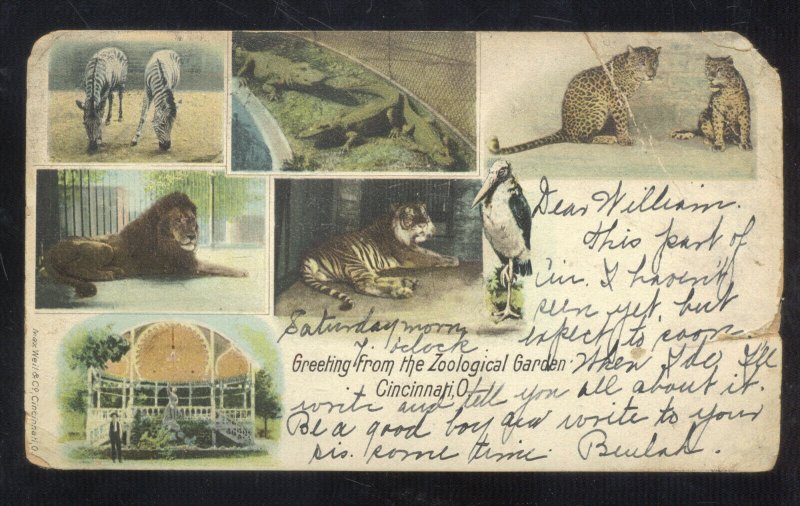 Dear William.
This part of
Cin. I haven't
seen yet, but
expect to soon
When I do I'll
write and tell you all about it.
Be a good boy and write to your
sis. some time. Beulah.
Saturday morn
7 o'clock
Greeting from the Zoological Garden
Cincinnati, O.
Max Weil & Co, Cincinnati, O.